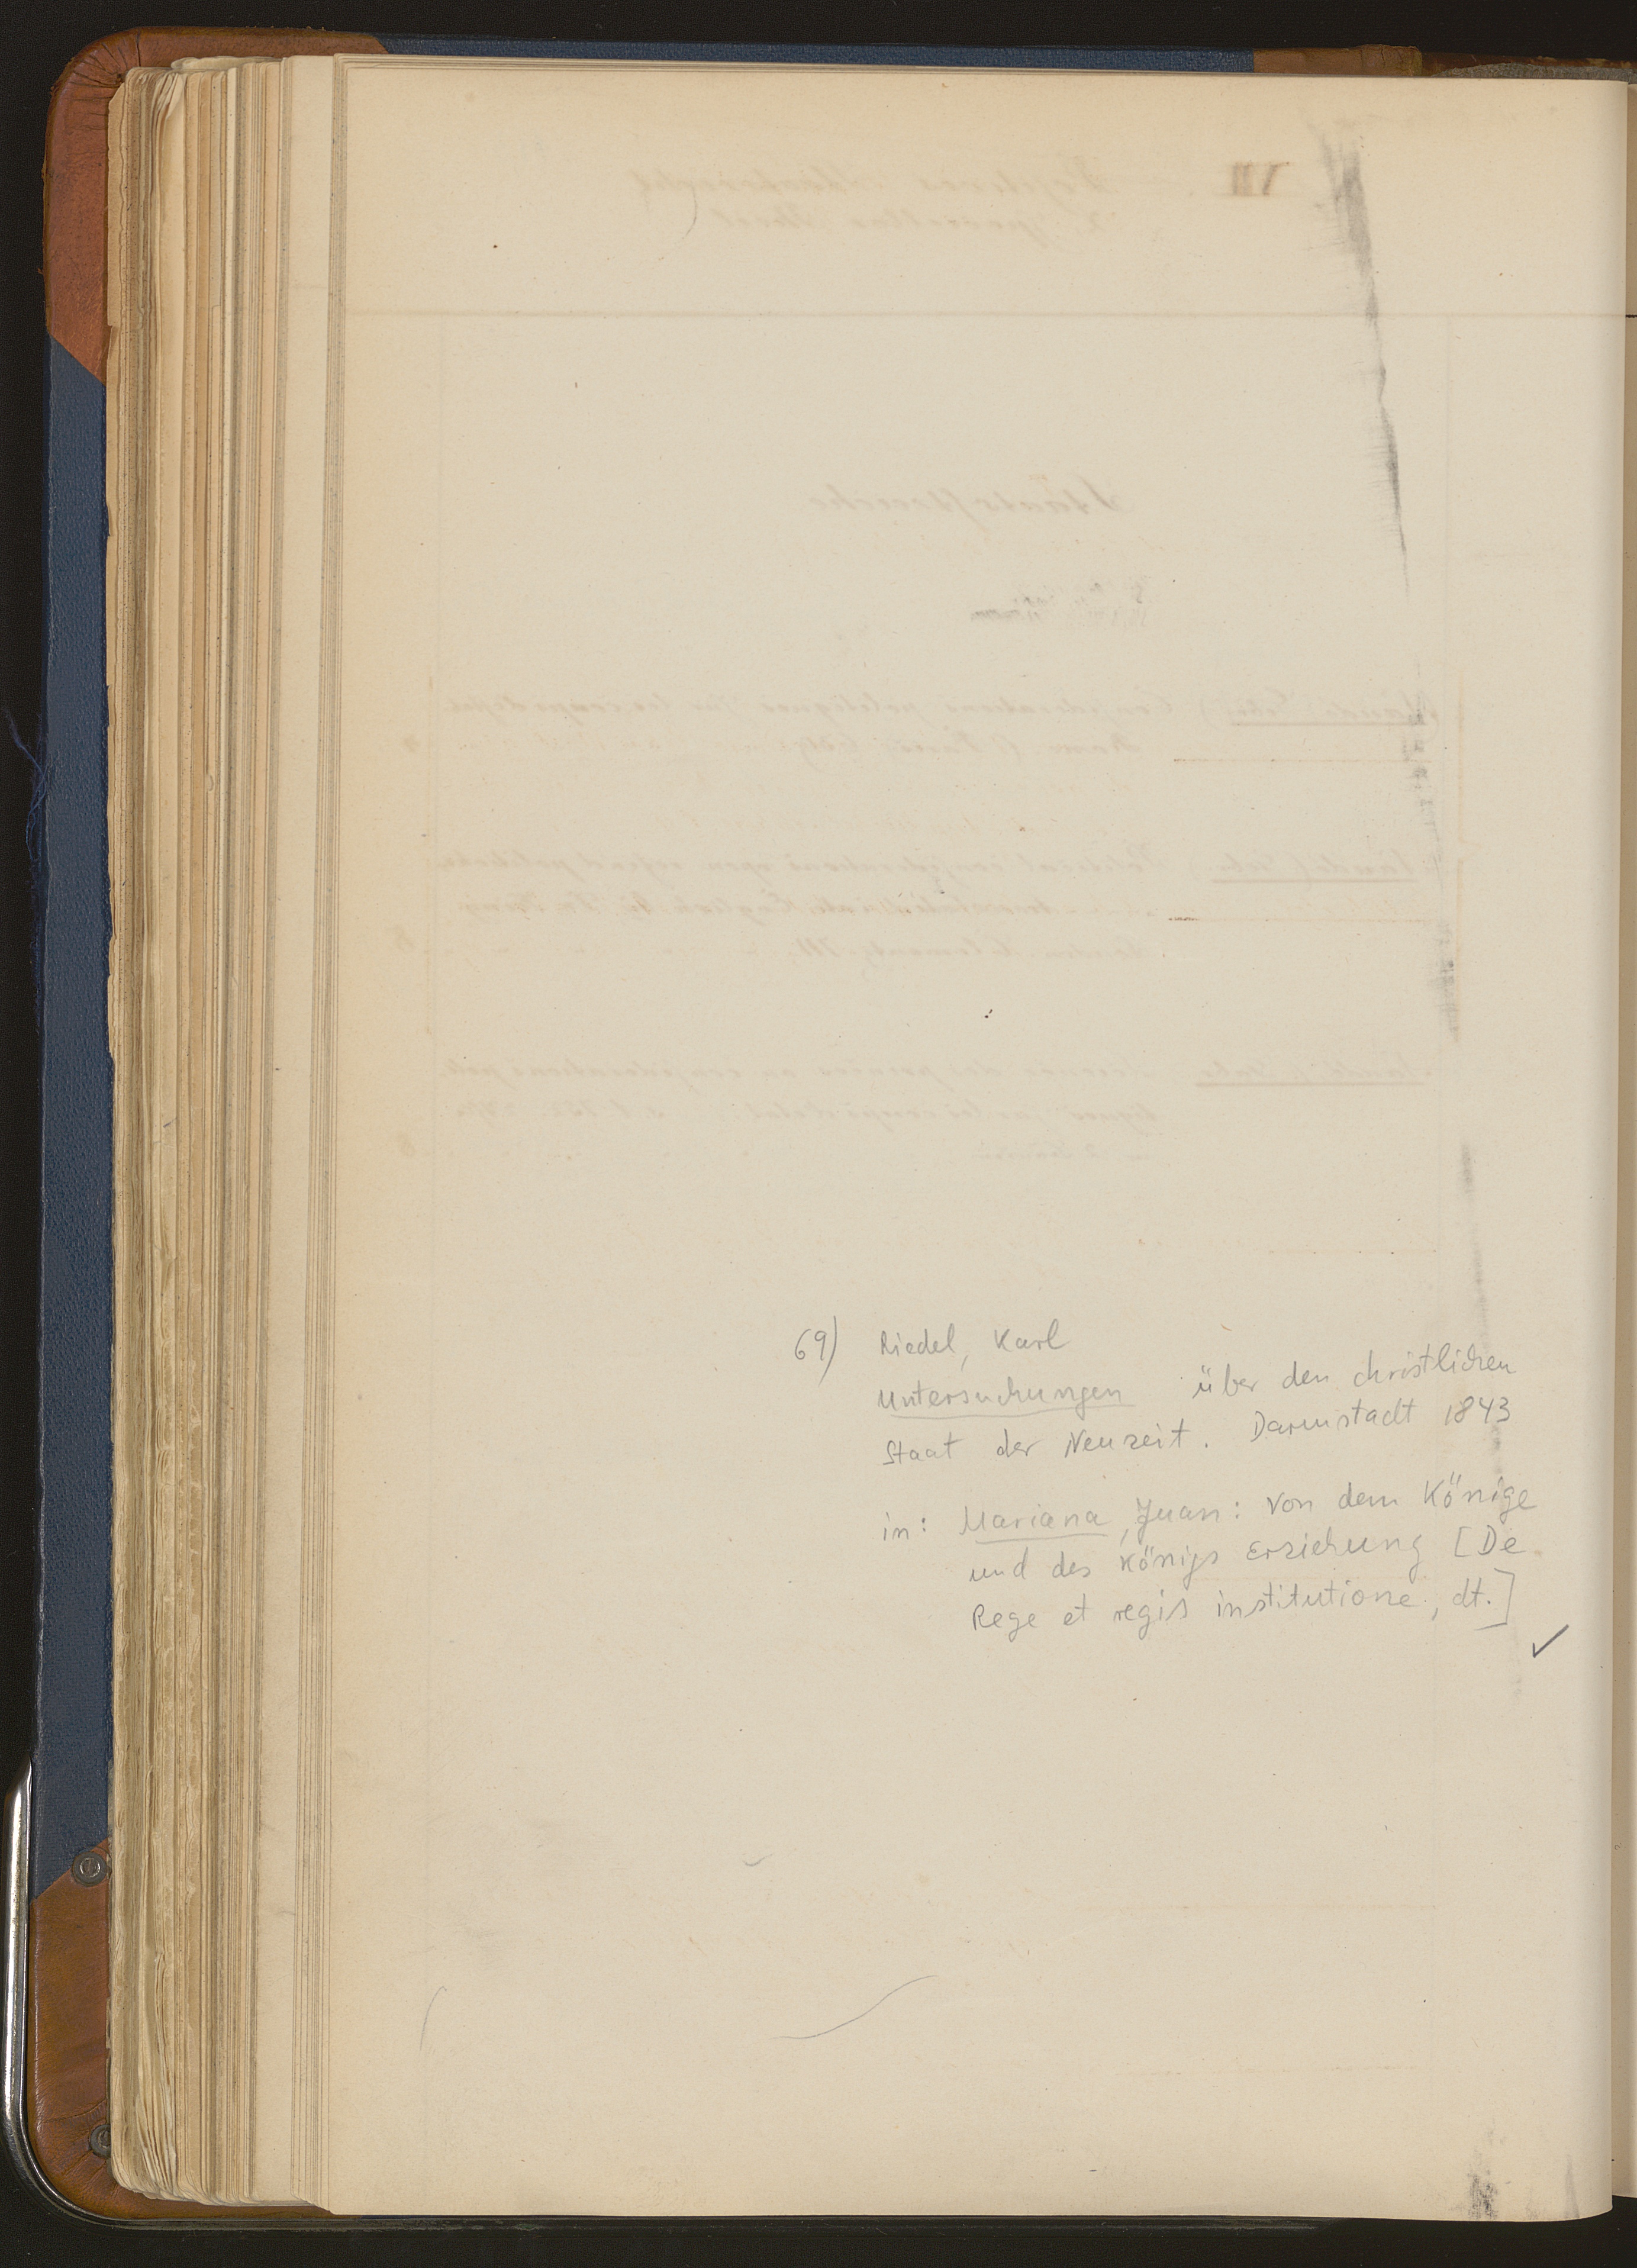 69) Riedel, Karl
Untersuchungen über den christlichen
Staat der Neuzeit. Darmstadt 1843
in: Mariana, Juan: Von dem Könige
und des Königs Erziehung [De
Rege et regis institutione, dt.]
✓